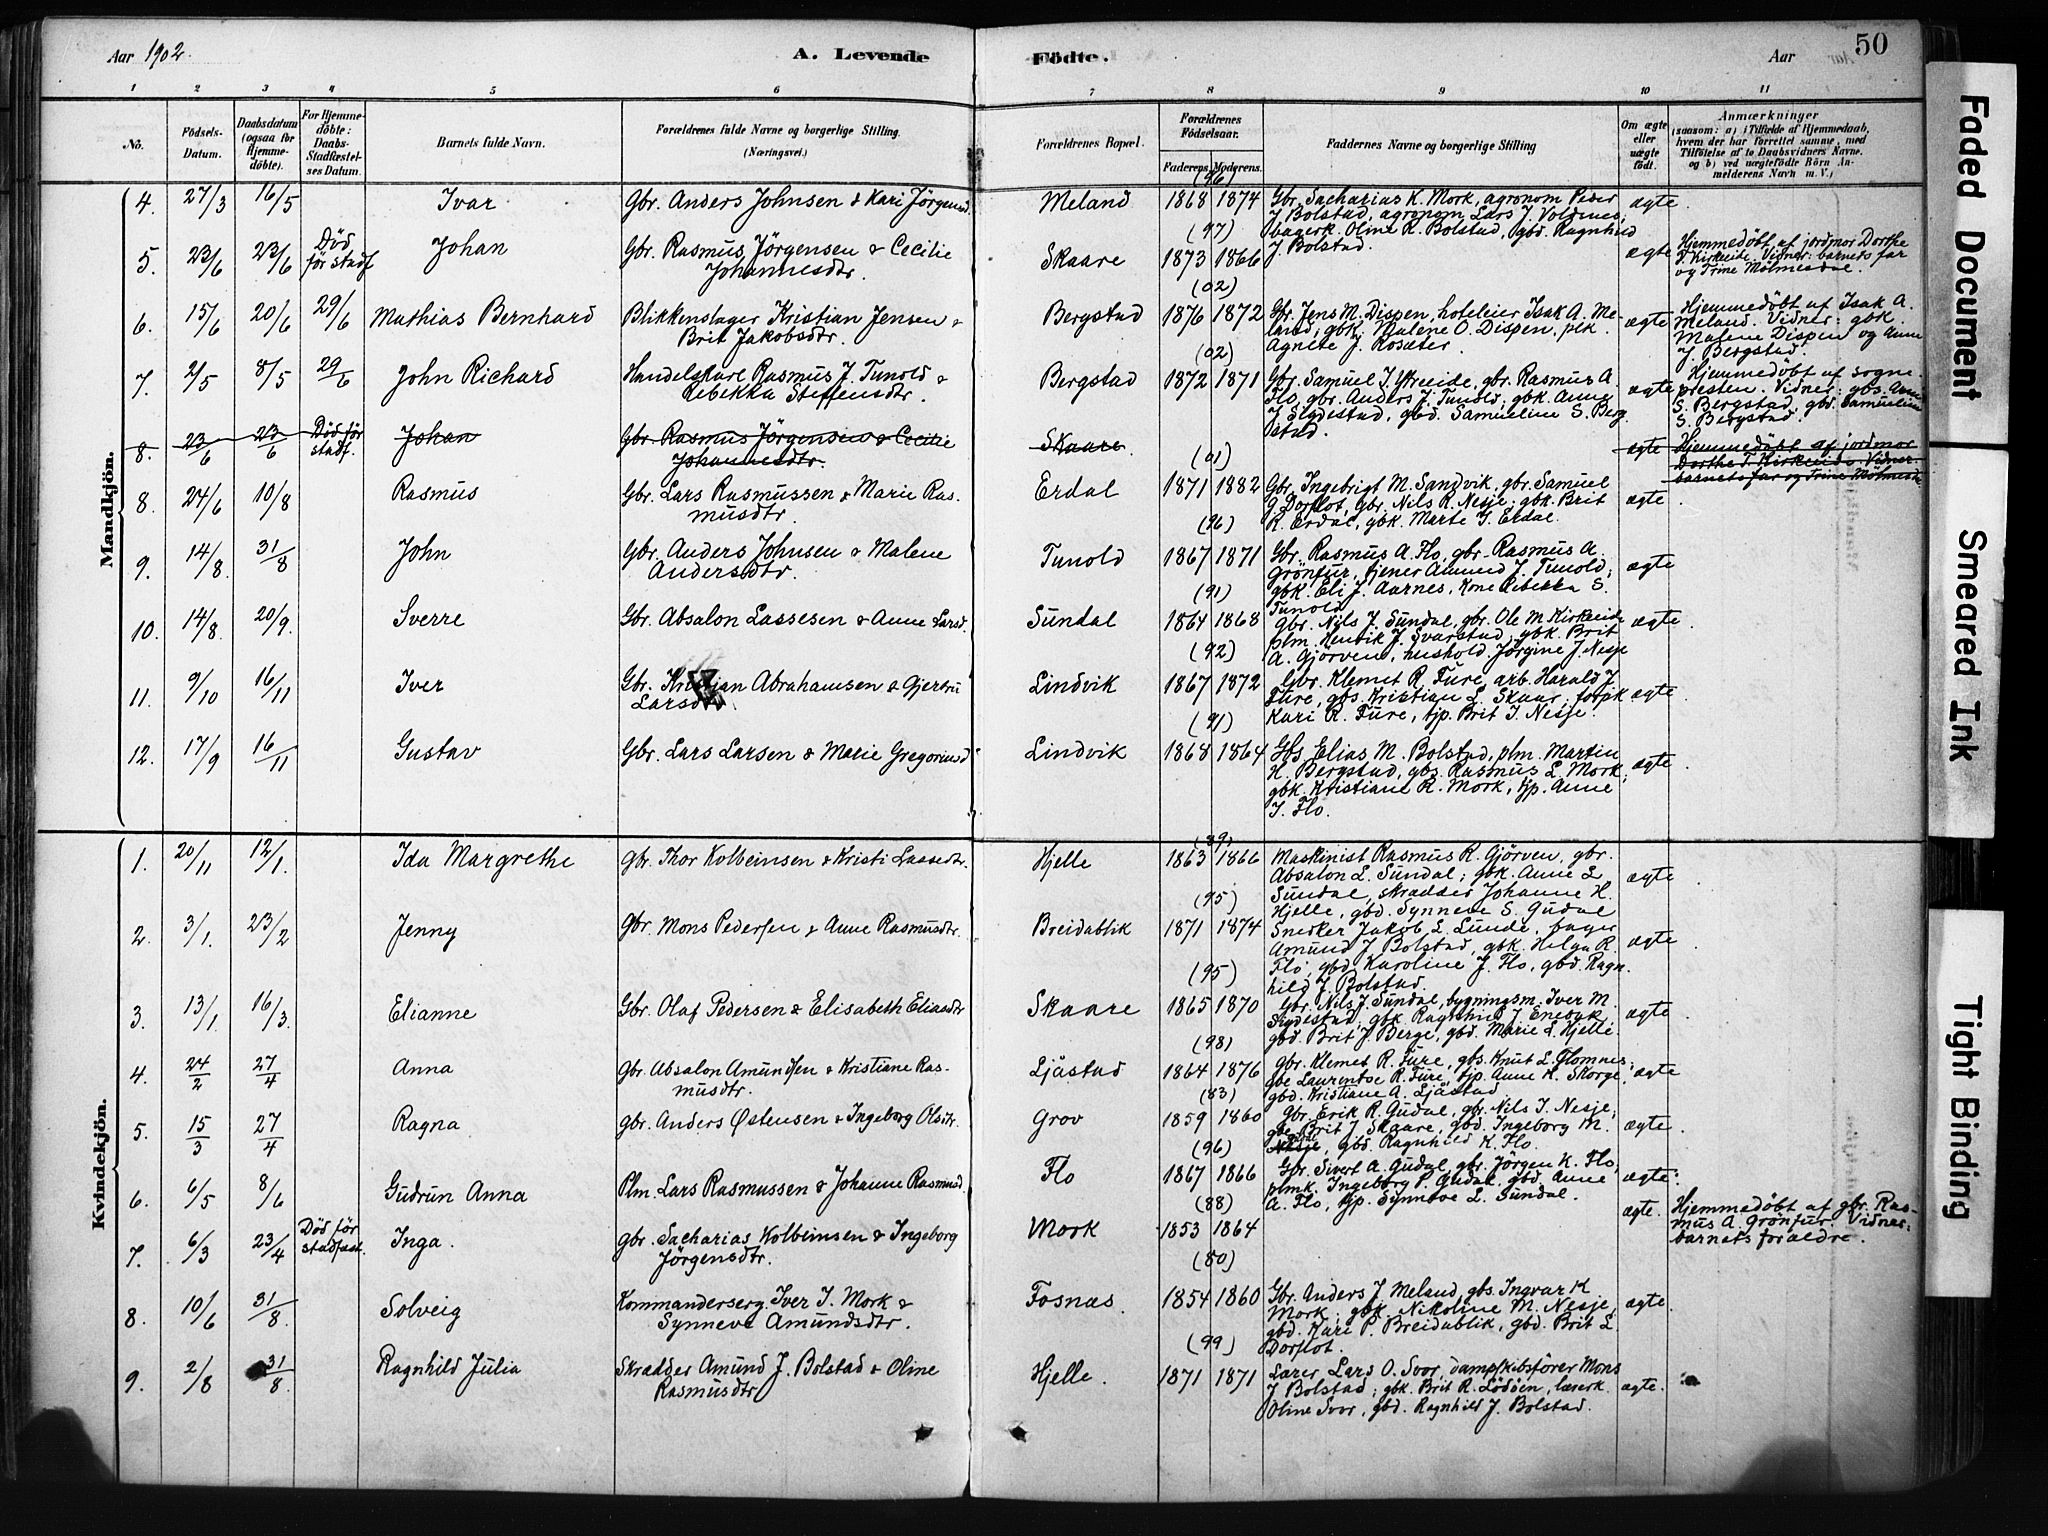 Aar 1902.
A. Levende Födte.
Aar
50
1 2 3 4 5 6 7 8 9 10 11
No.
Födsels-Datum.
Daabsdatum (ogsaa for Hjemme-döbte).
For Hjemme-döbte: Daabs-Stadfæstel-ses Datum.
Barnets fulde Navn.
Forældrenes fulde Navne og borgerlige Stilling.
(Næringsvei.)
Forældrenes Bopæl.
Forældrenes Födselsaar.
Faderens. Moderens.
Faddernes Navne og borgerlige Stilling
Om ægte eller uægte födt.
Anmærkninger
(saasom: a) i Tilfælde af Hjemmedaab,
hvem der har forrettet samme, med
Tilföielse af to Daabsvidners Navne.
og b) ved uægtefödte Börn An-
melderens Navn m. V.)
Mandkjön.
(96)
4. 27/3 16/5 Ivar Gbr. Anders Johnsen & Kari Jörgensd. Meland 1868 1874 Gbr. Sacharias K. Mork, agronom Peder
J. Bolstad, agronom Lars J. Voldsnes,
bagerk. Oline R. Bolstad, gbd. Ragnhild
J. Bolstad. ægte.
(97)
5. 23/6 23/6 Död för stadf Johan Gbr. Rasmus Jörgensen & Cecilie
Johannesdtr. Skaare 1873 1866 ægte Hjemmedöbt af jordmor Dorthe
T. Kirkeide. Vidner: barnets far
og Trine Mölmesdal.
(02)
6. 15/6 20/6 29/6 Mathias Bernhard Blikkenslager Kristian Jensen &
Brit Jakobsdtr. Bergstad 1876 1872 Gbr. Jens M. Dispen, hoteleier Isak A. Me-
land; gbk. Malene O. Dispen, pik.
Agnete J. Rosæter. ægte Hjemmedöbt af Isak A.
Meland. Vidner: gbk.
Malene Dispen og Anne
J. Bergstad.
(02)
7. 2/5 8/5 29/6 John Richard Handelskarl Rasmus J. Tunold &
Rebekka Steffensdtr. Bergstad 1872 1871 Gbr. Samuel I. Ytreeide, gbr. Rasmus A.
Flo, gbr. Anders J. Tunold; gbk. Anne
J. Slydestad, gbd. Samueline S. Berg-
stad. ægte Hjemmedöbt af sogne-
presten. Vidner: gbs. Anne
S. Bergstad, gbd. Samueline
S. Bergstad.
8. 23/6 23/6 Död för stadf. Johan Gbr. Rasmus Jörgensen & Cecilie
Johannesdtr. Skaare. ægte Hjemmedöbt af jordmor
Dorthe T. Kirkeeide. Vidner:
barnets far og Trine Mölmesd.
(01)
8. 24/6 10/8 Rasmus Gbr. Lars Rasmussen & Marie Ras-
musdtr. Erdal 1871 1882 Gbr. Ingebrigt M. Sandvik, gbr. Samuel
G. Dorflot, gbr. Nils R. Nesje; gbk. Brit
R. Erdal, gbk. Marte J. Erdal. ægte.
(96)
9. 14/8. 31/8 John Gbr. Anders Johnsen & Malene
Andersdtr. Tunold 1867 1871 Gbr. Rasmus A. Flo, gbr. Rasmus A.
Grönfur, tjener Amund J. Tunold;
gbk. Eli J. Aarnes, kone Rebekka S.
Tunold ægte
(91)
10. 14/8. 20/9. Sverre Gbr. Absalon Lassesen & Anne Larsd. Sundal 1864 1868 Gbr. Nils J. Sundal, gbr. Ole M. Kirkeeide
plm. Henrik J. Svarstad; gbk. Brit
A. Gjörven, hushold. Jörgine J. Nesje ægte.
(92)
11. 9/10 16/11 Iver Gbr. Kristian Abrahamsen & Gjertru
Larsdtr. Lindvik 1867 1872 Gbr. Klemet R. Fure, arb. Harald J.
Fure, gbs. Kristian L. Skaar; forpk.
Kari R. Fure, tjp. Brit I. Nesje. ægte.
(91)
12. 17/9 16/11 Gustav Gbr. Lars Larsen & Marie Gregoriusd Lindvik 1868 1864 Gbs. Elias M. Bolstad, plm. Martin
H. Bergstad, gbs. Rasmus L. Mork;
gbk. Kristiane R. Mork, tjp. Anne
J. Flo. ægte.
Kvindekjön.
(89)
1. 20/11 12/1. Ida Margrethe Gbr. Thor Kolbeinsen & Kristi Lassedtr. Hjelle 1863 1866 Maskinist Rasmus R. Gjörven, gbr.
Absalon L. Sundal; gbk. Anne L.
Sundal, skrædder Johanne H.
Hjelle, gbd. Synneve S. Gudal ægte
(95)
2. 3/1. 23/2 Jenny Gbr. Mons Pedersen & Anne Rasmusdtr. Breidablik 1871 1874 Snedker Jakob L. Lunde, bager
Amund J. Bolstad, gbk. Helga R.
Flo, gbd. Karoline J. Flo, gbd. Ragn-
hild J. Bolstad. ægte.
(95)
3. 13/1. 16/3. Elianne Gbr. Olaf Pedersen & Elisabeth Eliasdtr Skaare 1865 1870 Gbr. Nils J. Sundal, bygningsm. Iver M.
Slydestad; gbk. Ragnhild J. Enebyk
gbd. Brit J. Berge, gbd. Marie L. Hjelle ægte.
(98)
4. 24/2 27/4 Anna Gbr. Absalon Amundsen & Kristiane Ras-
musdtr. Ljåstad 1864 1876 Gbr. Klemet R. Fure, gbs. Knut L. Flomnes;
gbe Laurentse R. Fure, tjp. Anne K. Skorge,
gbd. Kristiane A. Ljåstad ægte
(83)
5. 15/3 27/4 Ragna gbr. Anders Østensen & Ingeborg Olsdtr. Grov 1859 1860 Gbr. Erik R. Gudal, gbr. Nils I. Nesje;
gbe Brit J. Skaare, gbd. Ingeborg M.
Nesje, gbd. Ragnhild K. Flo. ægte.
(96)
6. 6/5 8/6 Gudrun Anna Plm. Lars Rasmussen & Johanne Rasmusd. Flo 1867 1866 Gbr. Sivert A. Gudal, gbr. Jörgen K. Flo,
plmk. Ingeborg P. Gudal, gbd. Anne
A. Flo, tjp. Synneve L. Sundal. ægte.
(88)
7. 6/3 23/4 Död för stadfæst. Inga. gbr. Sacharias Kolbeinsen & Ingeborg
Jörgensdtr. Mork 1853 1864 ægte. Hjemmedöbt af gbr. Ras-
mus A. Grönfur. Vidner:
barnets forældre.
(80)
8. 10/6 31/8. Solveig Kommanderserg. Iver I. Mork &
Synneve Amundsdtr. Fosnæs. 1854 1860 Gbr. Anders J. Meland, gbs. Ingvar K
Mork; gbk. Nikoline M. Nesje,
gbd. Kari P. Breidablik, gbd. Brit L.
Dorflot. ægte.
(99)
9. 2/8 31/8. Ragnhild Julia Skrædder Amund J. Bolstad & Oline
Rasmusdtr Hjelle. 1871 1871 Lærer Lars O. Svor, dampskibsförer Mons
J. Bolstad; gbk. Brit R. Lödöen, lærerk.
Oline Svor, gbd. Ragnhild J. Bolstad. ægte.
Faded Document
Smeared Ink
Tight Binding